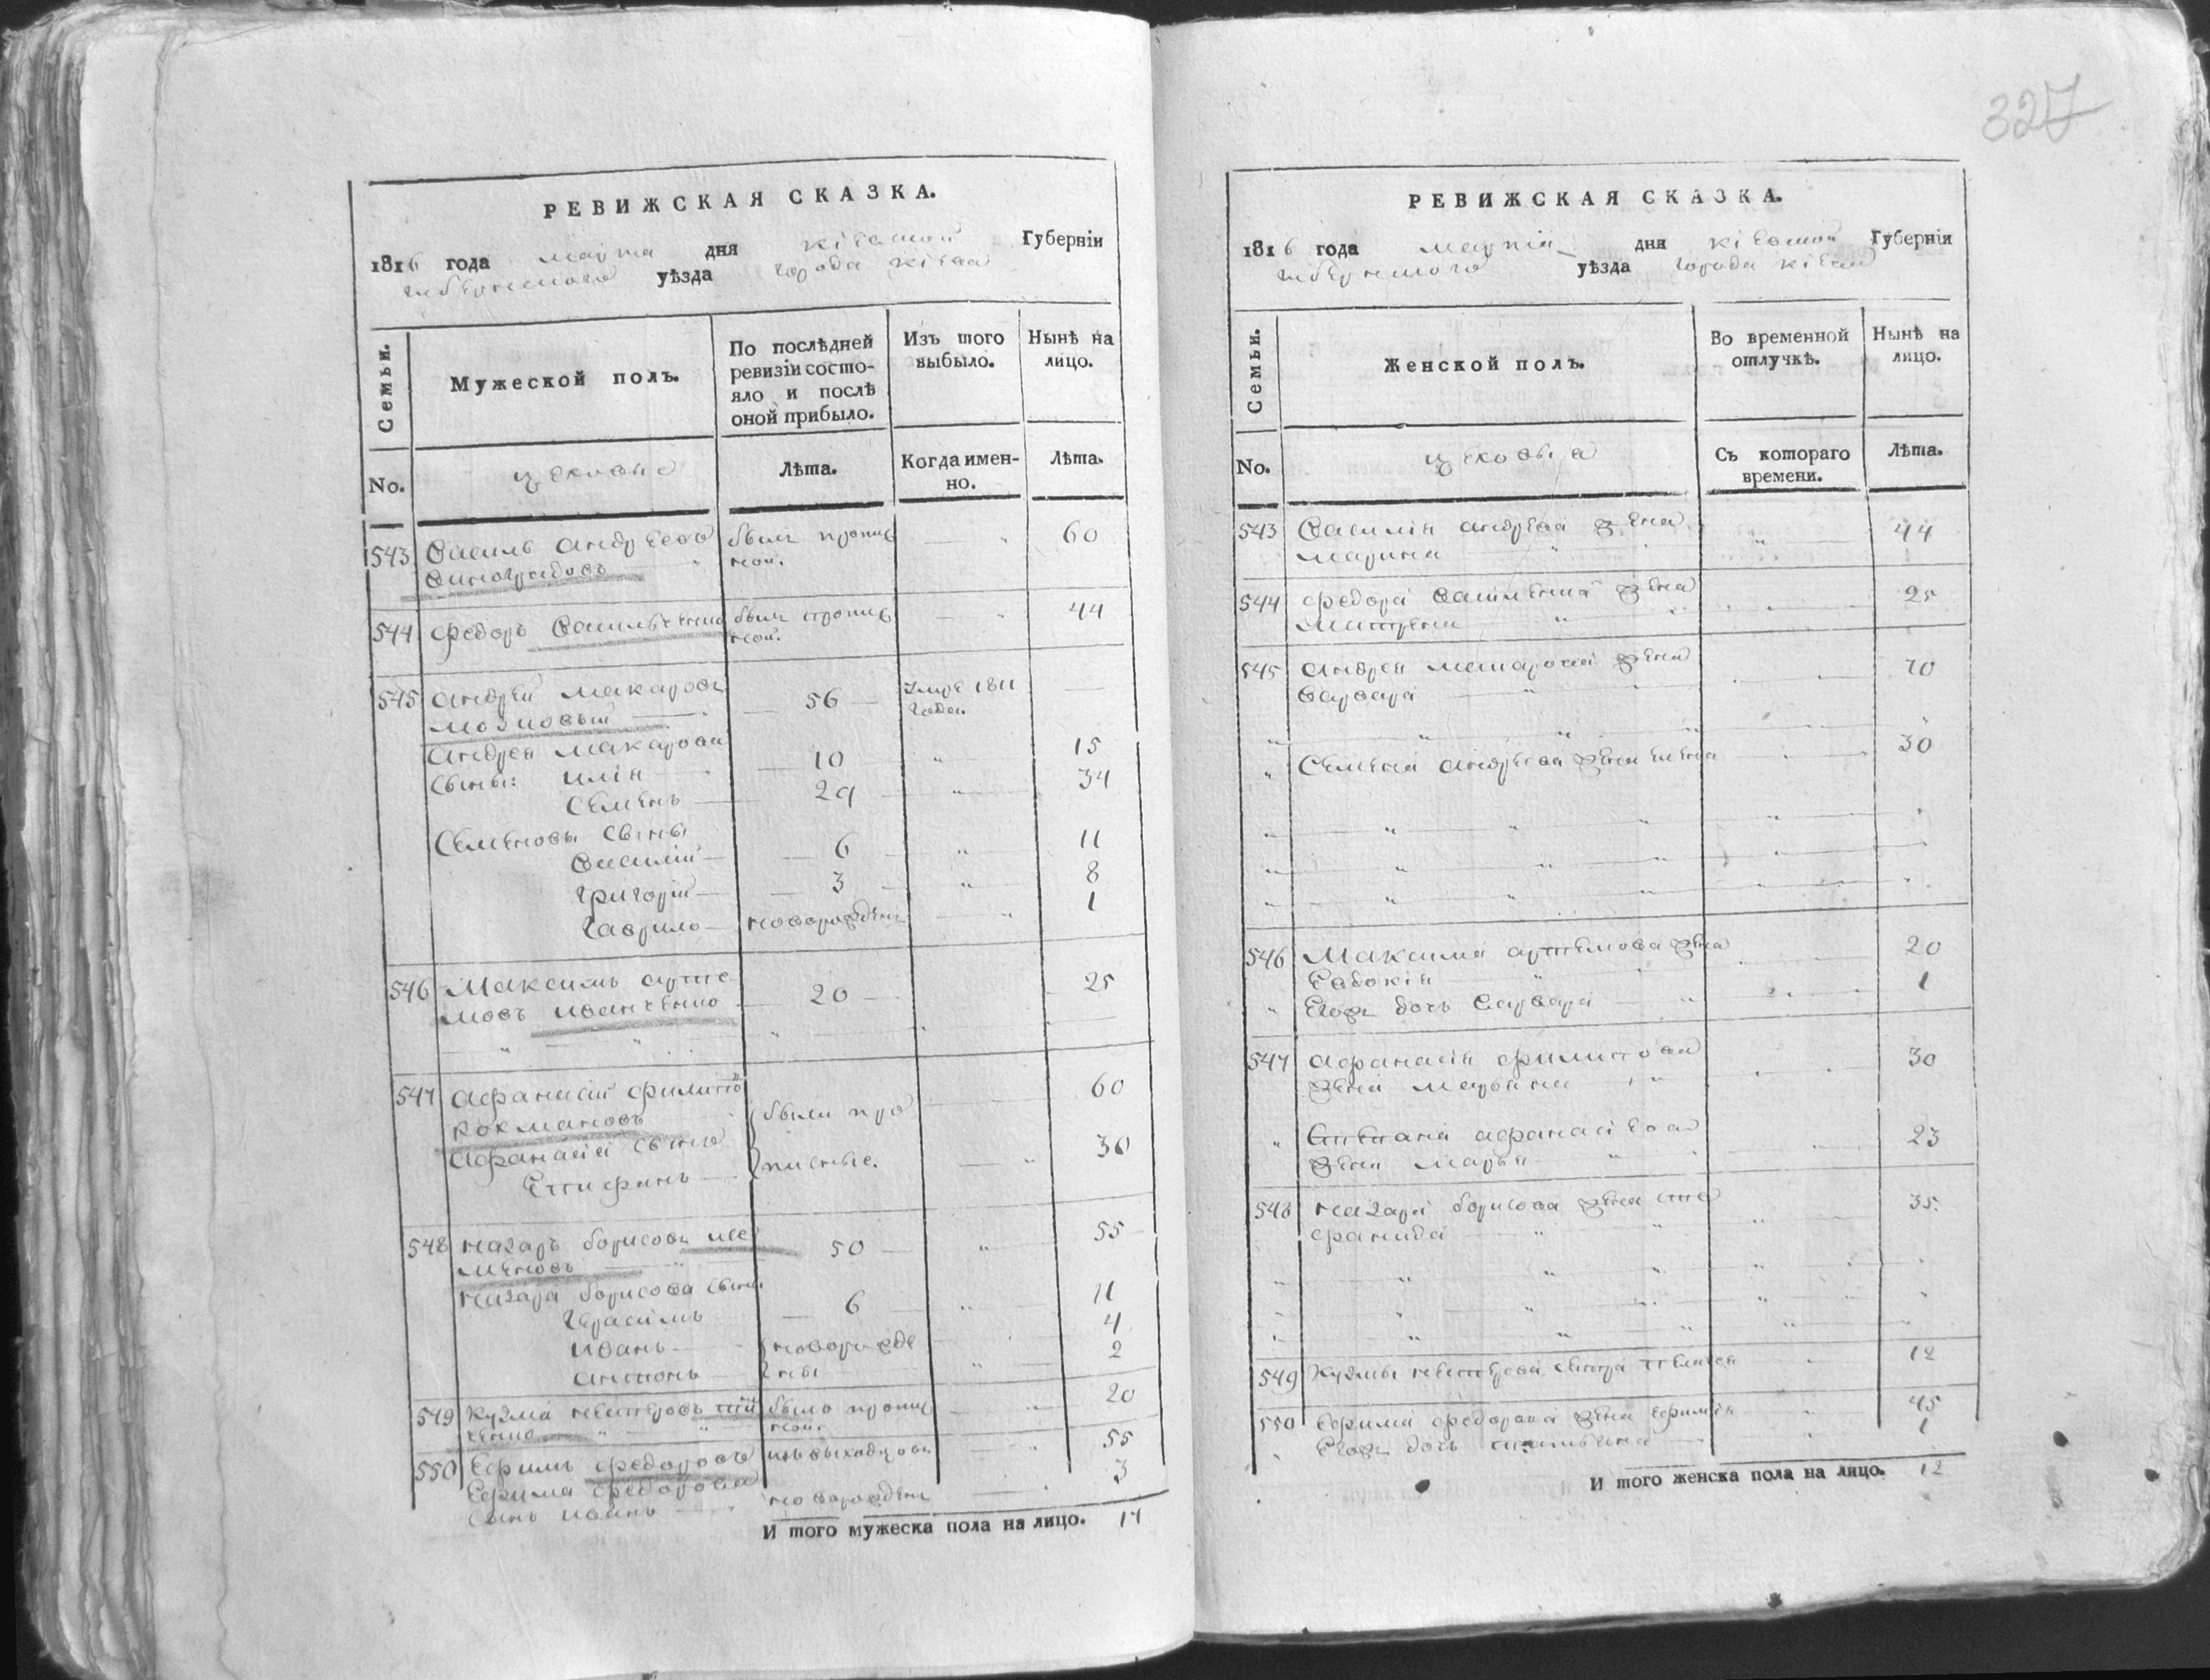 327
РЕВИЖСКАЯ СКАЗКА.
1816 года марта дня кіевской Губерніи
губернского уѣзда города кіева
Семьи.
Мужеской полъ.
По послѣдней ревизіи состо-
яло и послѣ
оной прибыло.
Изъ того
выбыло.
Нынѣ на
лицо.
No.
цеховые
Лѣта.
Когда имен-
но.
Лѣта.
543 Василь андреевъ былъ пропис 60
виноградовъ ной.
544 федоръ Васильченко былъ пропис 44
ной.
545 андрей макаровъ 56 умре 1811
года.
андрея макарова
сыны: илія 10 15
семенъ 29 34
семеновы сыны
василій 6 11
григорій 3 8
гаврило новорожденъ 1
546 Максимъ арте 20 25
мовъ иванченко
547 афанасій филипо 60
рокмановъ были про
афанасія сынъ писные.
30
548 назаръ борисовъ 50 55
назара борисова сыны
герасимъ 6 11
иванъ новорожде 4
антонъ ны 2
549 кузма было пропис 20
ной.
550 ефимъ федоровъ изъ выходцовъ 55
ефима федорова
сынъ иванъ новорожденъ 3
И того мужеска пола на лицо. 14
РЕВИЖСКАЯ СКАЗКА.
1816 года дня кіевской Губерніи
губернского уѣзда города кіева
Семьи.
Женской полъ.
Во временной
отлучкѣ.
Нынѣ на
лицо.
No.
цеховыя
Съ котораго
времени.
Лѣта.
543 василія андреева жена 44
марина
544 федора жена 25
545 андрея макарова жена 70
варвара
семена андреева жена 30
546 Максима артемова жена 20
евдокія
его жъ дочь варвара 1
547 афанасія филипова 30
жена марьяна
афанасіева 23
жена марья
548 назара борисова жена сте 35.
фанида
549 кузмы сестра 12
550 ефима федорова жена 45
его жъ дочь 1
И того женска пола на лицо. 12